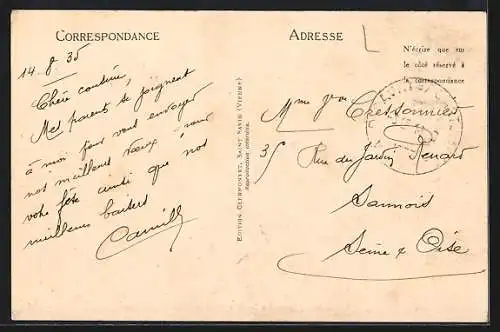 CORRESPONDANCE
14-8-35
Chère cousine,
Mes parents se joignent
à moi pour vous envoyer
nos meilleurs vœux pour
votre fête ainsi que nos
meilleurs baisers
Camille
EDITION CLERPONTET, SAINT-SAVIN (VIENNE)
Reproduction interdite.
ADRESSE
N'écrire que sur
le côté réservé à
la correspondance
Mme Cressonnier
35 Rue du Jardin Renard
Sannois
Seine & Oise